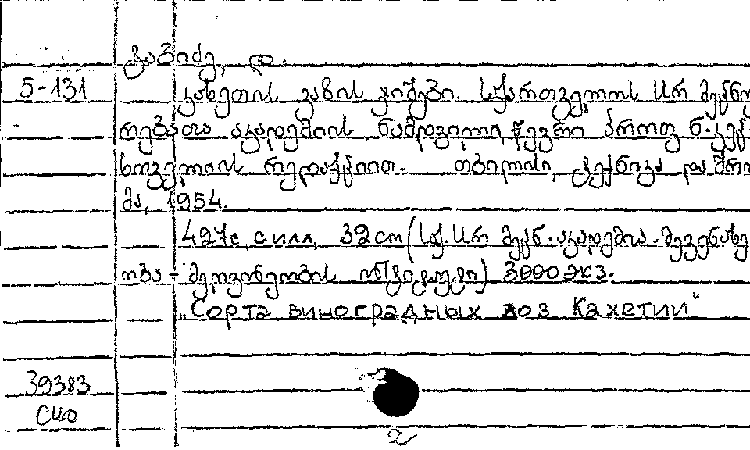 ტაბიძე, დ.
5-131 კახეთის ვაზის ჯიშები. საქართველოს სსრ მეცნი
რებათა აკადემიის ნამდვილი წევრი პროფ. ნ. კეც
ხოველის რედაქციით. თბილისი, ტექნიკა და შრო
მა, 1954.
427с, с илл, 32 cm (საქ. სსრ მეცნ. აკადემია. მევენახე
ობა-მეღვინეობის ინსტიტუტი) 3000 экз.
"Сорта виноградных лоз Кахетии"
39383
2